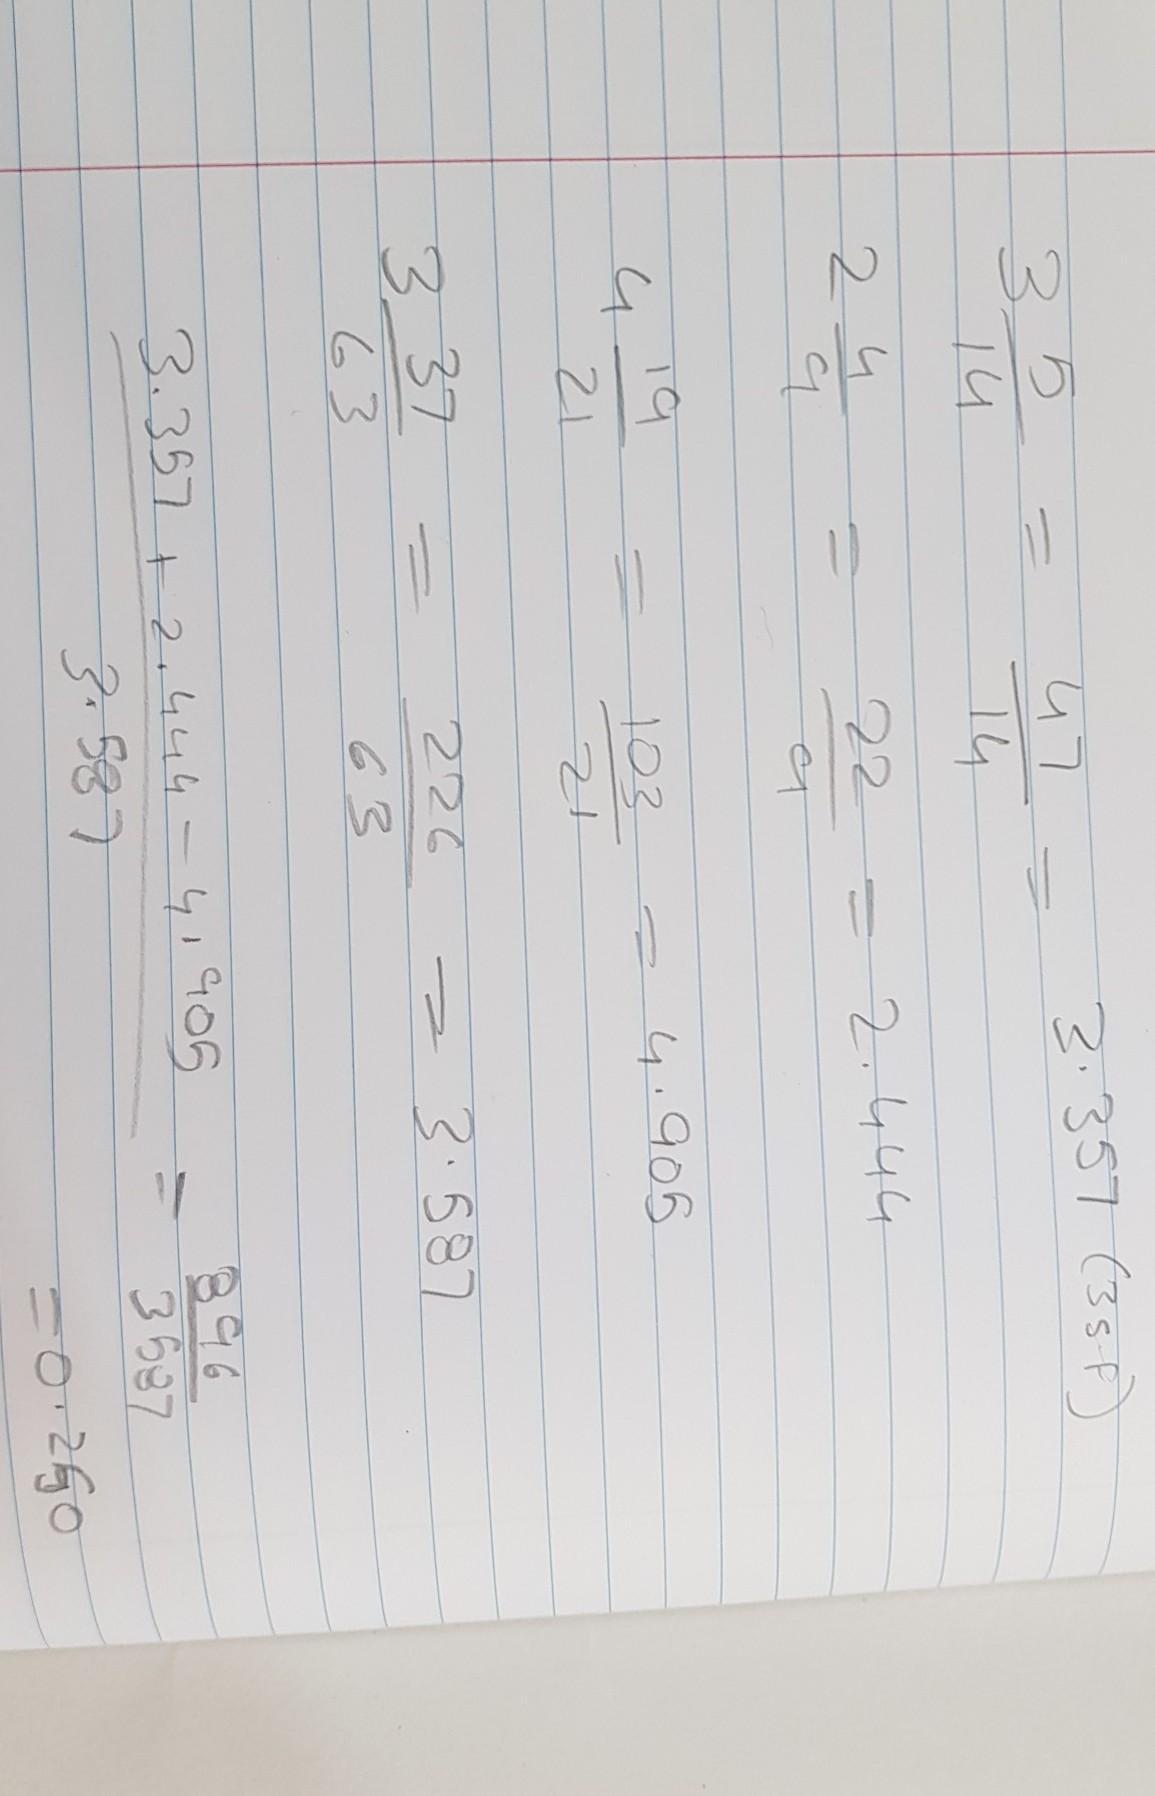 3 5/14 = 47/14 = 3.357 (3 s.f)
2 4/9 = 22/9 = 2.444
4 19/21 = 103/21 = 4.905
3 37/63 = 226/63 = 3.587
3.357 + 2.444 - 4.905 / 3.587 = 896/3587
= 0.250